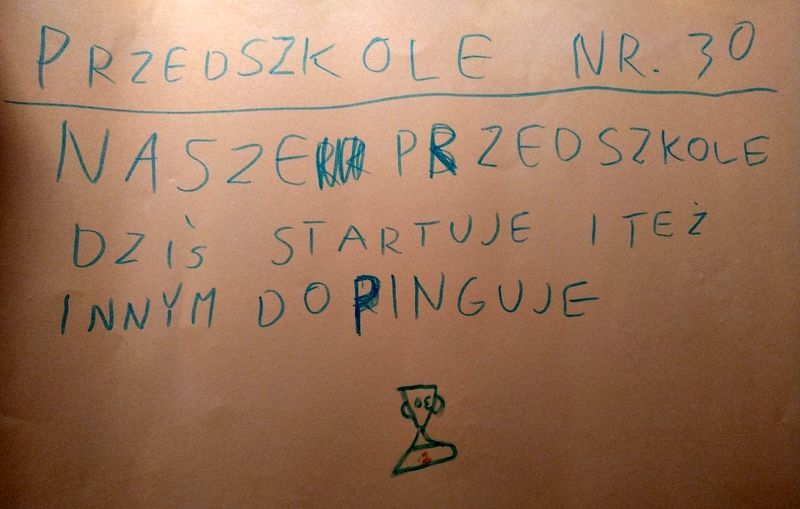 PRZEDSZKOLE NR. 30
NASZE PRZEDSZKOLE
DZIŚ STARTUJE I TEŻ
INNYM DOPINGUJE
30
1